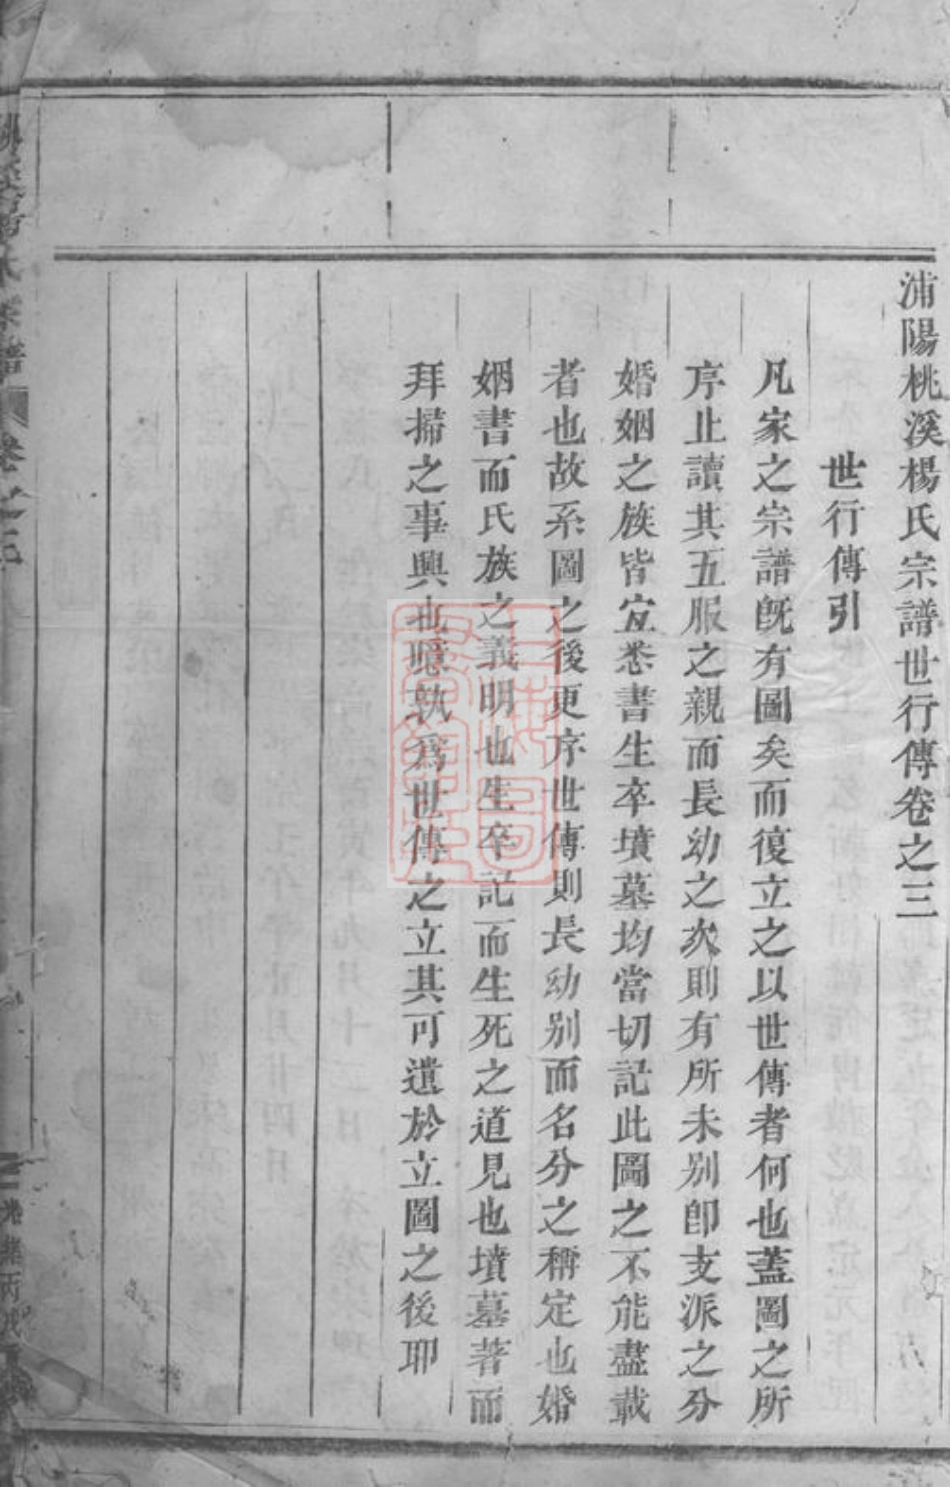 浦陽桃溪楊氏宗譜世行傳卷之三
世行傳引
凡家之宗譜旣有圖矣而復立之以世傳者何也蓋圖之所
序止讀其五服之親而長幼之次則有所未別卽支派之分
婚姻之族皆宜悉書生卒墳墓均當切記此圖之不能盡載
者也故系圖之後更序世傳則長幼別而名分之稱定也婚
姻書而氏族之義明也生卒記而生死之道見也墳墓著而
拜掃之事興也噫孰爲世傳之立其可遺於立圖之後耶
卷之三
光緒丙戌